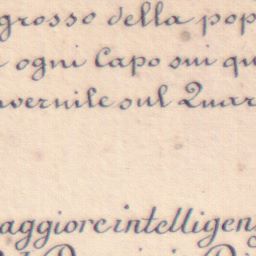 grosso della pop
ogni Capo sui qu
vernile sul Quar
aggiore intelligen